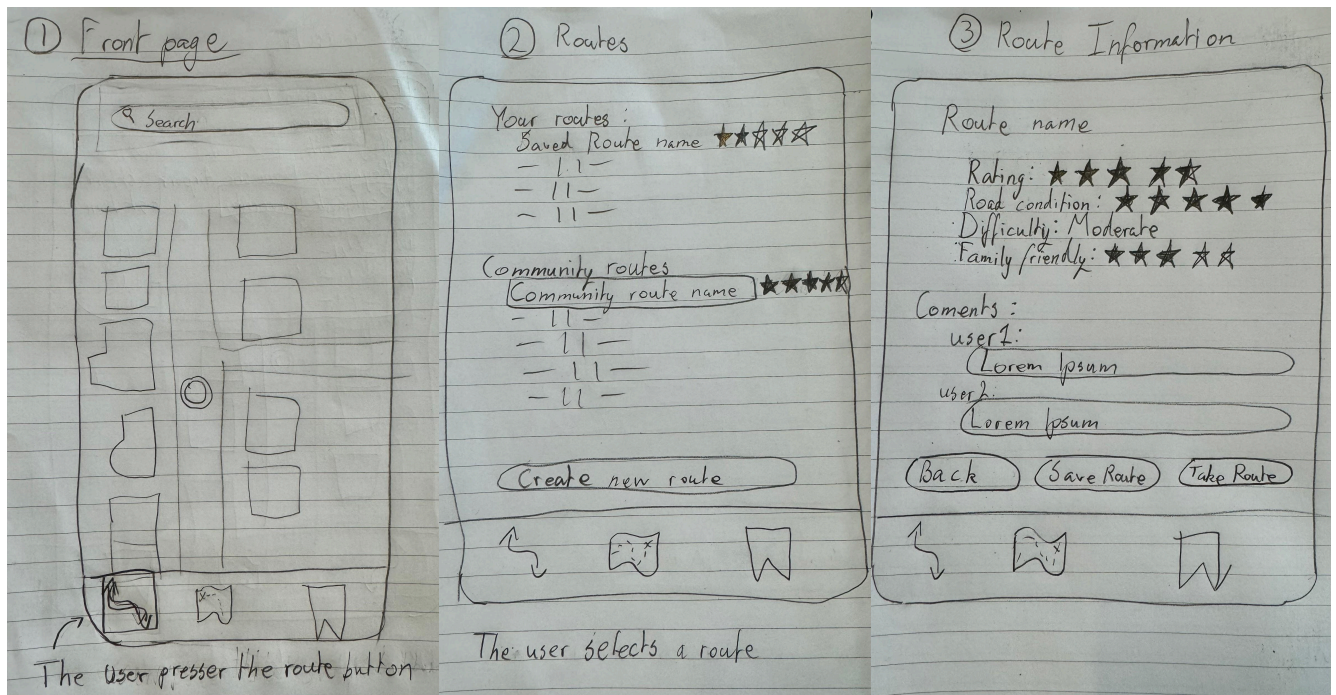 ① Front page
Search
The user presser the route button
② Routes
Your routes:
Saved Route name ★★☆☆☆
— 11 —
— 11 —
— 11 —
Community routes
Community route name
— 11 —
— 11 —
— 11 —
— 11 —
Create new route
The user selects a route
③ Route Information
Route name
Rating:
Road condition:
Difficulty: Moderate
Family friendly:
Coments:
user1:
Lorem Ipsum
user2:
Lorem Ipsum
Back
Save Route
Take Route